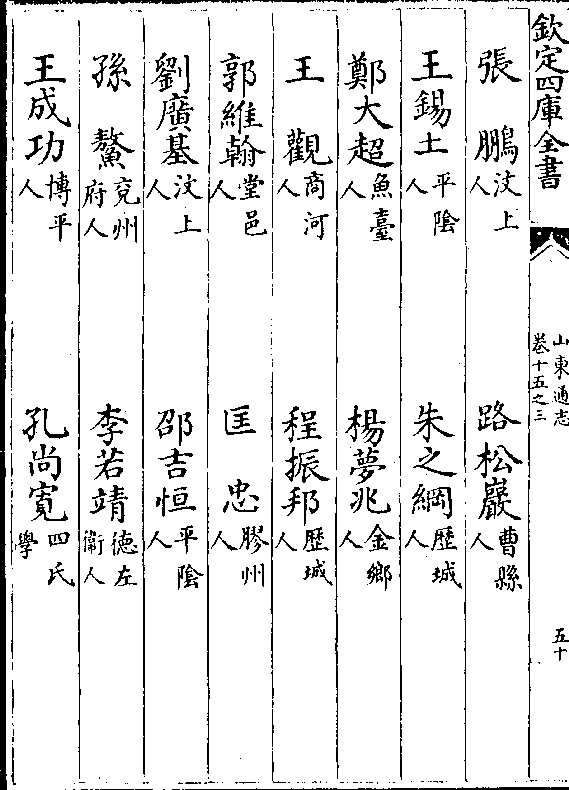 欽定四庫全書
山東通志
卷十五之三
五十
張鵬汶上人 路松巖曹縣人
王錫土平陰人 朱之綱歷城人
鄭大超魚臺人 楊夢兆金鄉人
王觀商河人 程振邦歷城人
郭維翰堂邑人 匡忠膠州人
劉廣基汶上人 邵吉恒平陰人
孫鰲兖州府人 李若靖德左衞人
王成功博平人 孔尚寛四氏學